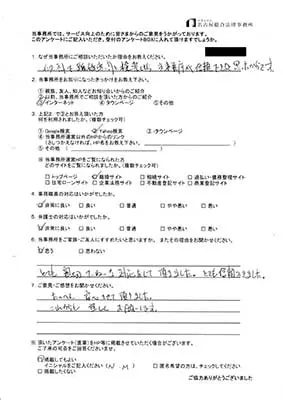 名古屋総合法律事務所
当事務所では、サービス向上のために皆さまからのご意見をうかがっております。
このアンケートにご記入いただき、受付のアンケート箱に入れて頂けますでしょうか。
1. なぜ当事務所にご相談いただいたか理由をお教えください。
2. 当事務所をお知りになったきっかけをお教え下さい。
①親族、友人、知人などお知り合いからのご紹介
②以前、当事務所でご相談を頂いた方からのご紹介
③インターネット ④タウンページ ⑤その他
3. 上記2で③とお答え頂いた方
何を利用されましたか。(複数チェック可)
□ Google検索 Yahoo検索 □ iタウンページ
□ 当事務所運営以外のHPからのリンク
(さしつかえなければ、HP名をお教え下さい。)
□ その他( )
■ 当事務所運営HPをご覧になられた方
どのサイトをご覧になられましたか。(複数チェック可)
□ トップページ 離婚サイト □ 相続サイト □ 過払い・債務整理サイト
□ 住宅ローンサイト □ 企業法務サイト □ 不動産登記サイト □ 商業登記サイト
4. 事務職員の対応はいかがでしたか。
非常に良い □ 良い □ 普通 □ やや悪い □ 悪い
5. 弁護士の対応はいかがでしたか。
非常に良い □ 良い □ 普通 □ やや悪い □ 悪い
6. 当事務所をご家族・ご友人にすすめたいと思いますか。またその理由をお聞かせ下さい。
思う □ 思わない
とても親切、ていねいな対応をして頂きました。とても信頼できました。
7. ご意見・ご感想をお聞かせください。
たいへん安心させて頂きました。
これからも宜しくお願いします。
※ 頂いたアンケート(直筆)をHP等に掲載させていただく場合がございます。
ご了承の可否をご回答くださいませ。
掲載してもよい
イニシャルをご記入ください(N . M) □ 匿名希望の方は、チェックしてください
□ 掲載したくない
ご協力ありがとうございました